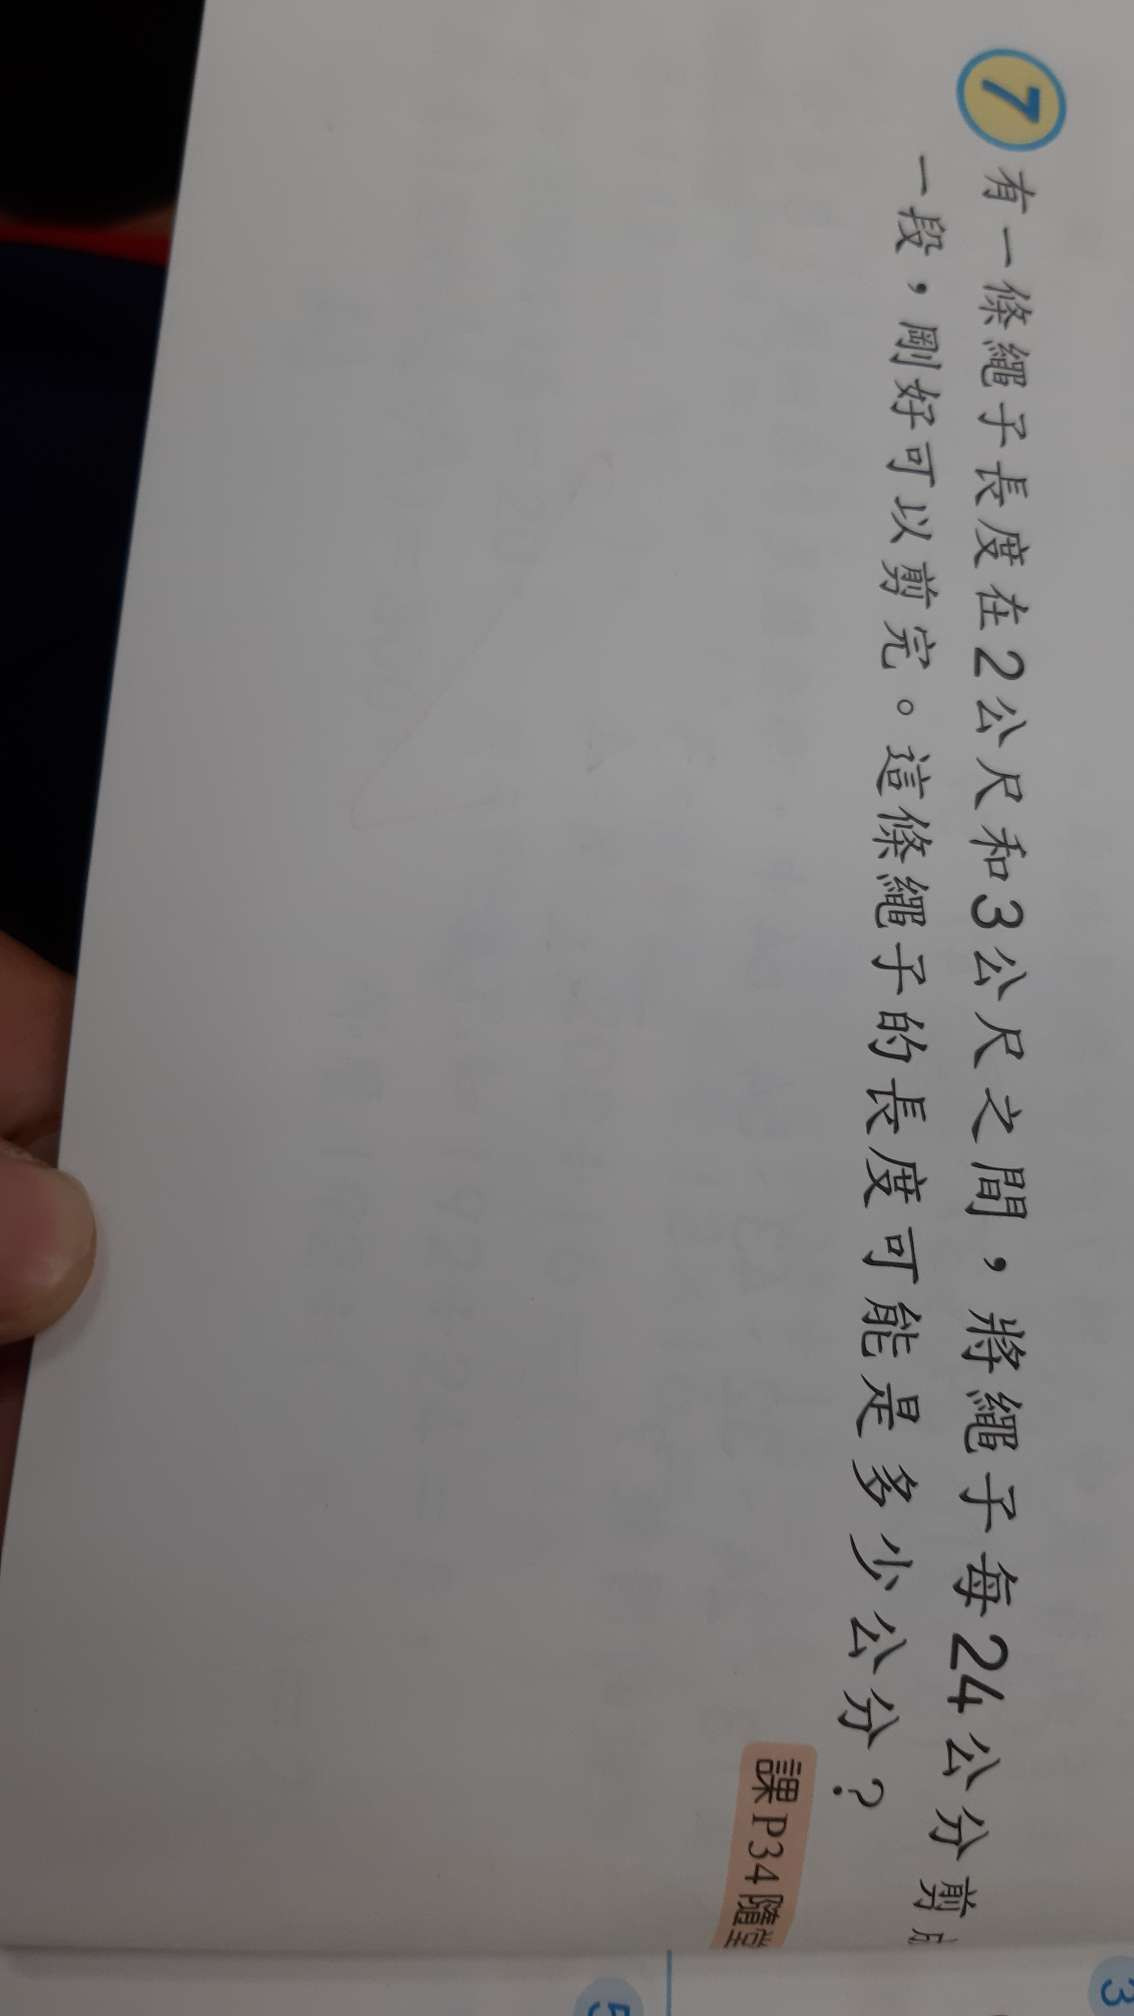 7
有一條繩子長度在2公尺和3公尺之間，將繩子每24公分剪成
一段，剛好可以剪完。這條繩子的長度可能是多少公分？
課P34隨堂
3
5